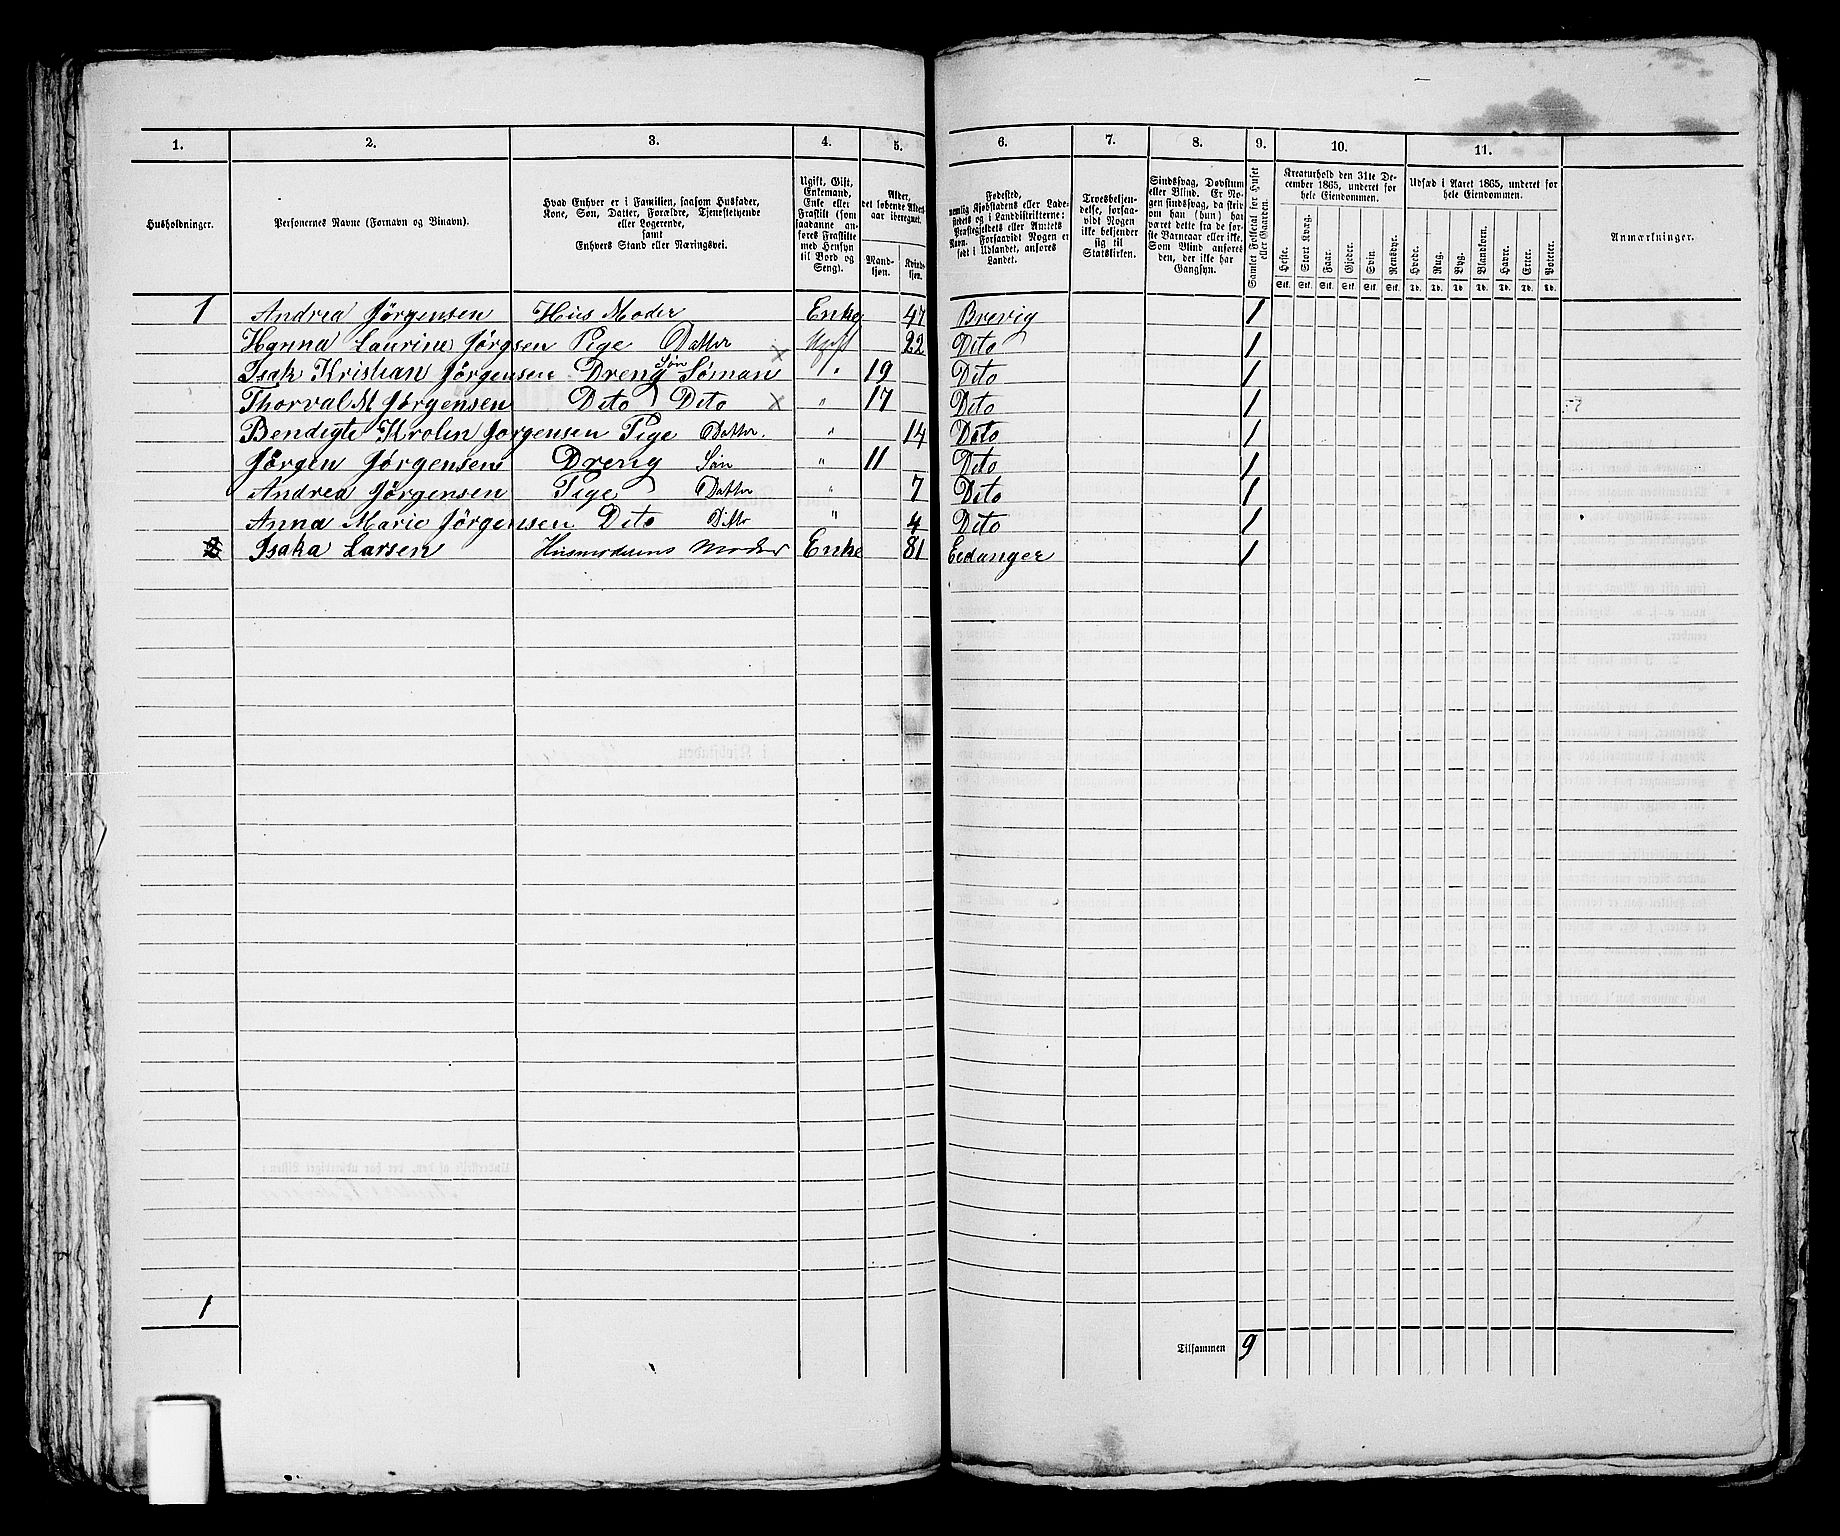 1. 2. 3. 4. 5. 6. 7. 8. 9. 10. 11.
Husholdninger.
Personernes Navne (Fornavn og Binavn).
Hvad Enhver er i Familien, saasom Husfader,
Kone, Søn, Datter, Forældre, Tjenestetyende
eller Logerende,
samt
Enhvers Stand eller Næringsvei.
Ugift, Gift,
Enkemand,
Enke eller
Fraskilt (som
saadanne an-
føres Fraskilte
med Hensyn
til Bord og
Seng).
Alder,
det løbende Alders-
aar iberegnet.
Mand-
kjøn.
Kvind-
kjøn.
Fødested,
nemlig Kjøbstadens eller Lade-
stedets og i Landdistrikterne:
Præstegjeldets eller Amtets
Navn. Forsaavidt Nogen er
født i Udlandet, anføres
Landet.
Troesbekjen-
delse, forsaa-
vidt Nogen
ikke bekjender
sig til
Statskirken.
Sindssvag, Døvstum
eller Blind. Er No-
gen sindssvag, da skriv
om han (hun) har
været dette fra de før-
ste Barneaar eller ikke.
Som Blind anføres
den, der ikke har
Gangsyn.
Samlet Folketal for Huset
eller Gaarden.
Kreaturhold den 31te De-
cember 1865, underet for
hele Eiendommen.
Heste. Stort Kvæg. Faar. Gjeder. Svin Rensdyr.
Stk. Stk. Stk. Stk. Stk. Stk.
Udsæd i Aaret 1865, underet for
hele Eiendommen.
Hvede. Rug. Byg. Blandkorn. Havre. Erter. Poteter.
Td. Td. Td. Td. Td. Td. Td.
Anmærkninger.
1 Andrea Jørgensen Hus Moder Enke 47 Brevig 1
Hanna Laurine Jørgsen Pige Datter Ugift 22 Dito 1
Isak Kristian Jørgensen Dreng Søn Søman " 19 Dito 1
Thorval M Jørgensen Dito Dito " 17 Dito 1
Bendigte Krolin Jørgensen Pige Datter. " 14 Dito 1
Jørgen Jørgensen Dreng Søn " 11 Dito 1
Andrea Jørgensen Pige Datter " 7 Dito 1
Anna Marie Jørgensen Dito Ditto " 4 Dito 1
2 Isaka Larsen Husmoderens Moder Enke 81 Eidanger 1
1
Tilsammen 9